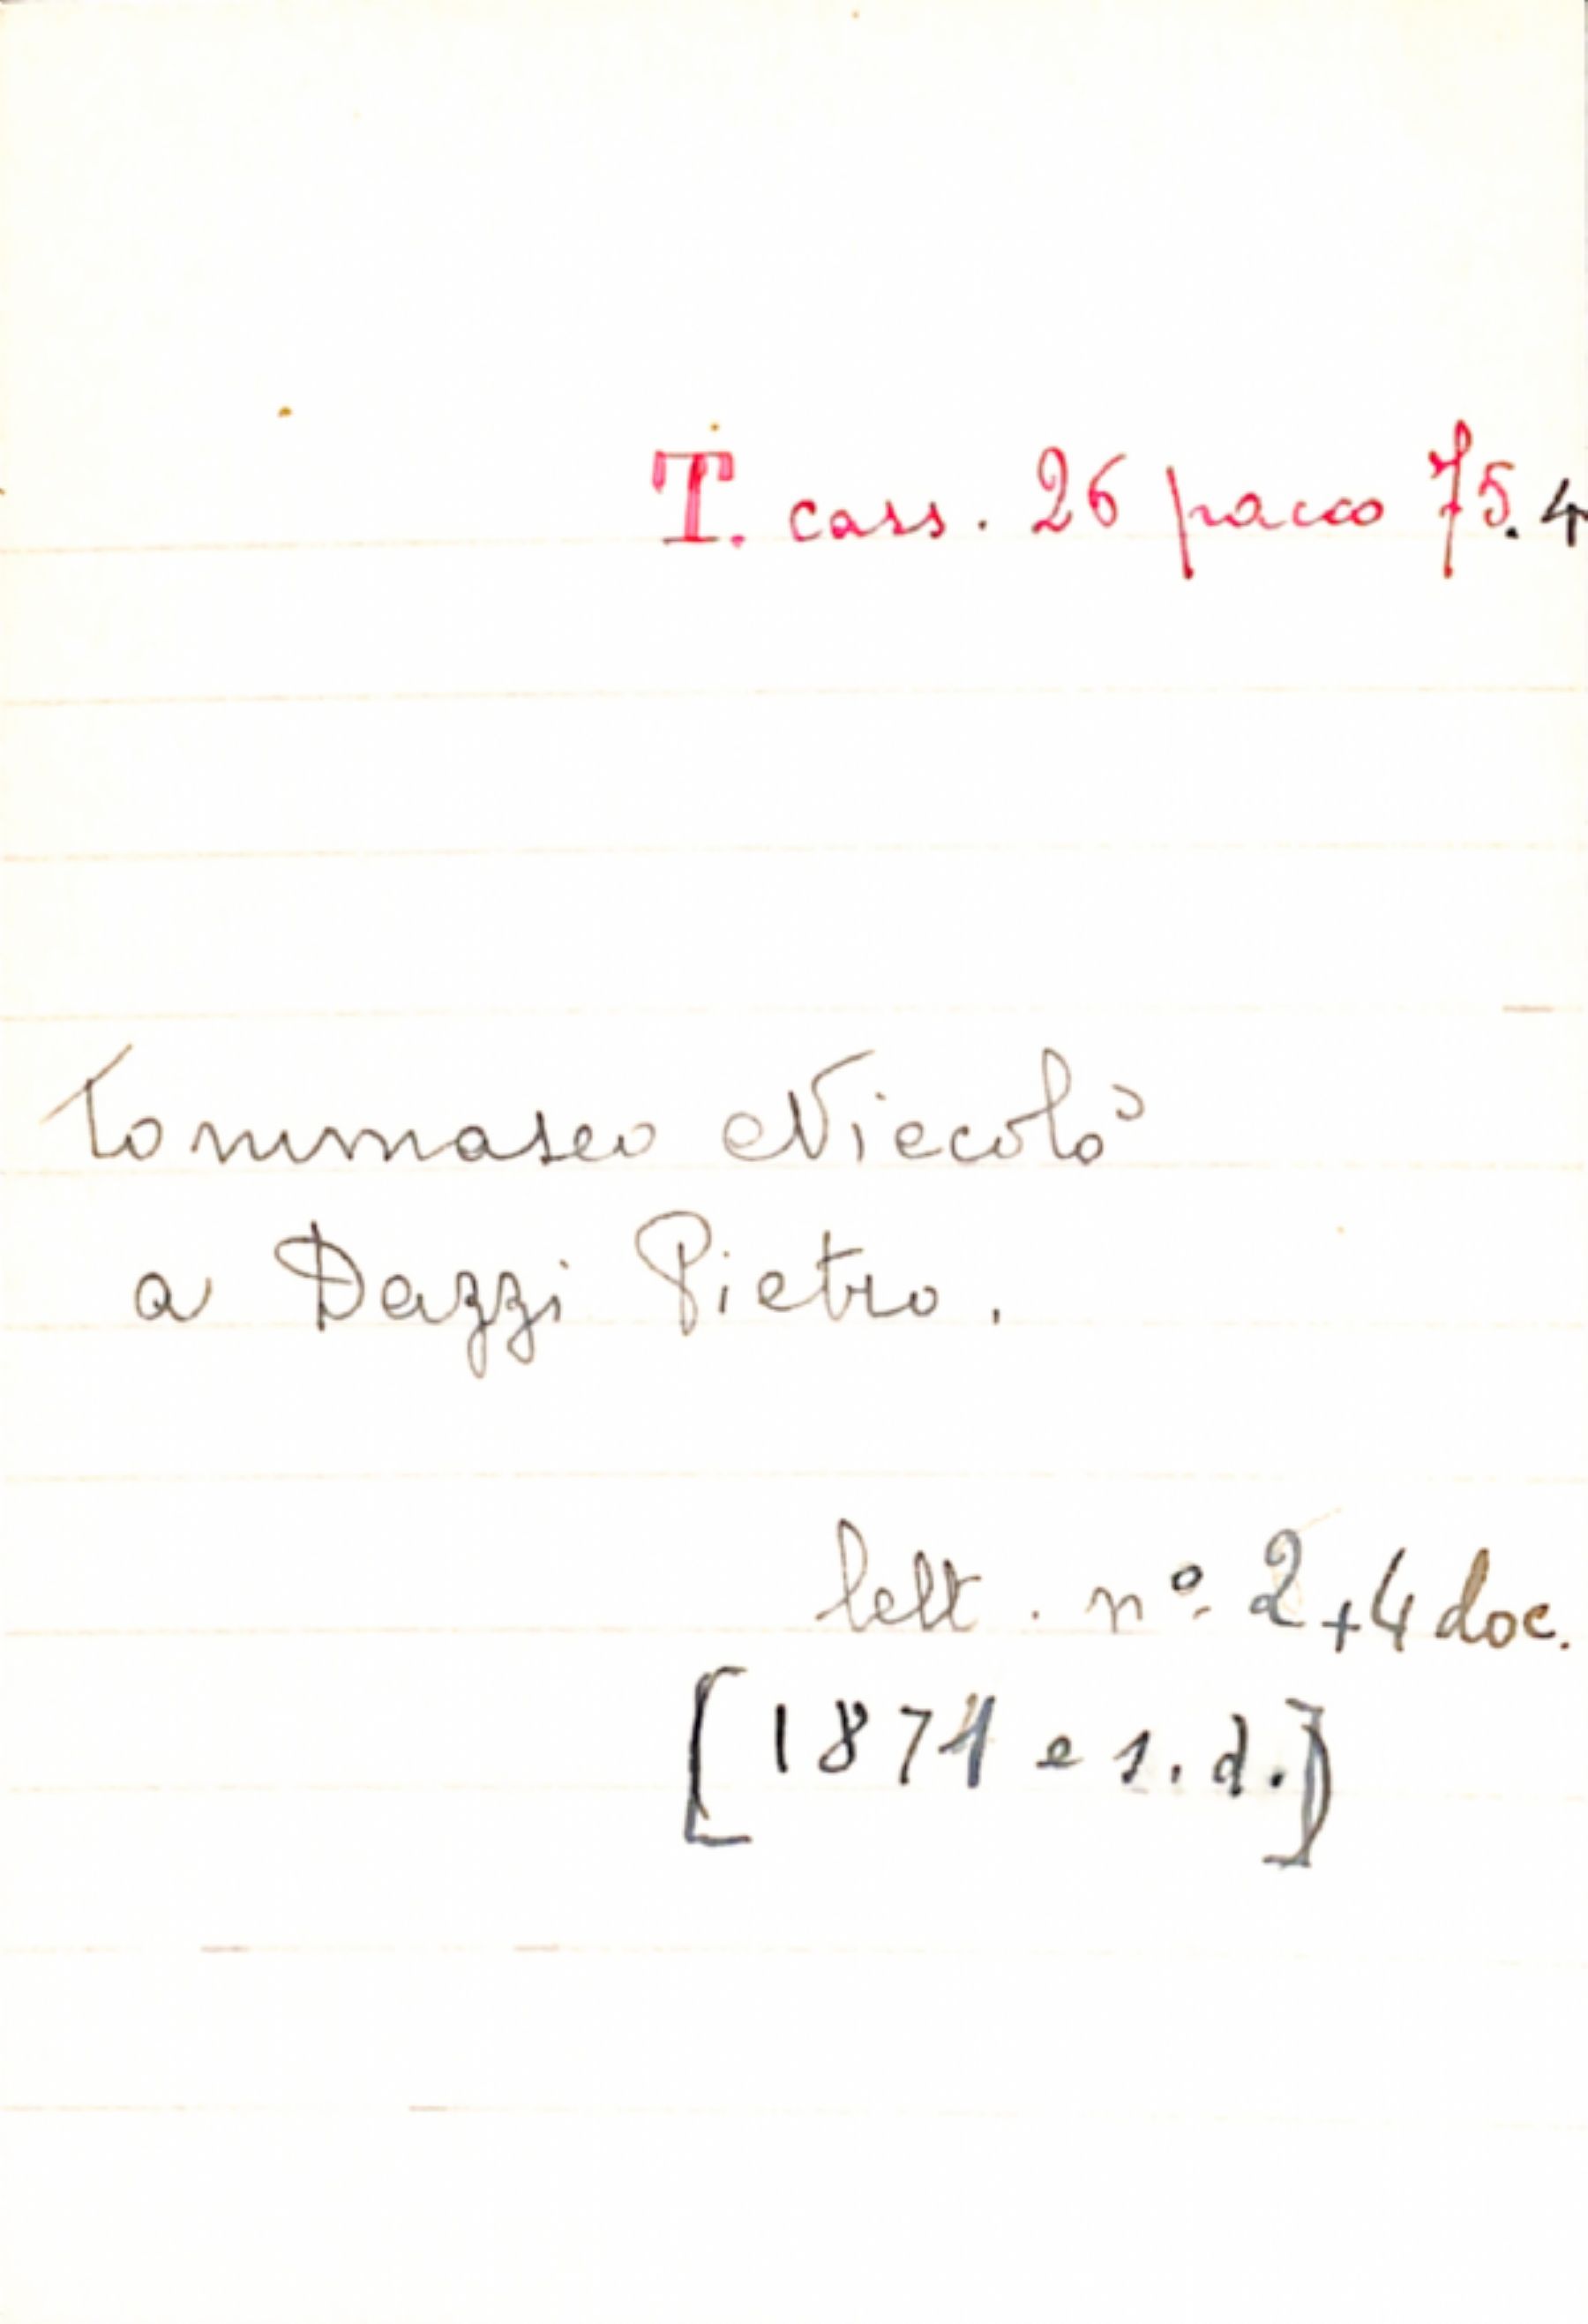 T. cass. 26 pacco 75.4
Tommaseo Niccolò
a Dazzi Pietro.
lett. nº 2+4 doc.
[1871 e s.d.]